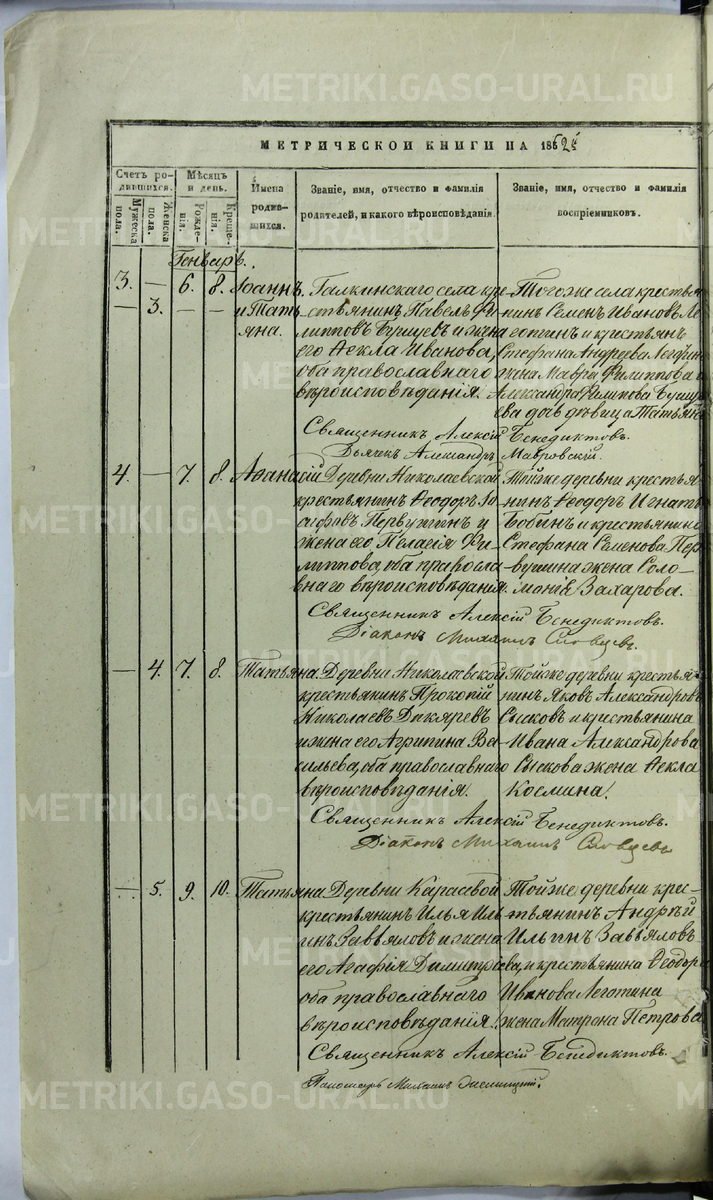 METRIKI.GASO-URAL.RU
МЕТРИЧЕСКОЙ КНИГИ НА 1862й
Счетъ родившихся.
Мужеска пола.
Женска пола.
Мѣсяцъ и день.
Рожденія.
Крещенія.
Имена родившихся.
Званіе, имя, отчество и фамилія родителей, и какого вѣроисповѣданія.
Званіе, имя, отчество и фамилія воспріемниковъ.
Генварь.
3. — 6. 8. Іоаннъ
— 3. — — и Татьяна.
Галкинскаго села кре-
стьянинъ Павелъ Фи-
липповъ и жена
его Ѳекла Иванова,
оба православнаго
вѣроисповѣданія.
Тогоже села крестья-
нинъ Семенъ Ивановъ
и крестьянъ
Стефана Андреева
жена Мавра Филиппова и
Александра Филипова
дочь дѣвица Татьяна
Священникъ Алексій Бенедиктовъ.
Дьячекъ Александръ Мавровскій.
4. — 7. 8. Аѳанасій
Деревни Николаевской
крестьянинъ Ѳеодоръ
Первушинъ и
жена его Пелагія Фи-
липпова, оба правосла-
внаго вѣроисповѣданія.
Тойже деревни крестья-
нинъ Ѳеодоръ Игнать
Бобинъ и крестьянина
Стефана Семенова Пер
вушина жена Соло-
монія Захарова.
Священникъ Алексій Бенедиктовъ.
Діаконъ Михаилъ Словцевъ.
— 4. 7. 8. Татьяна.
Деревни Николаевской
крестьянинъ Прокопій
Николаевъ Дикаревъ
и жена его Агрипина Ва-
сильева, оба православнаго
вѣроисповѣданія.
Тойже деревни крестья-
нинъ Яковъ Александровъ
Сысковъ и крестьянина
Ивана Александрова
Сыскова жена Ѳекла
Космина.
Священникъ Алексій Бенедиктовъ.
Діаконъ Михаилъ Словцевъ
— 5. 9. 10. Татьяна
Деревни Карасевой
крестьянинъ Илья Иль-
инъ Завьяловъ и жена
его Агафія Димитріева,
оба православнаго
вѣроисповѣданія.
Тойже деревни кре-
стьянинъ Андрей
Ильинъ Завьяловъ
и крестьянина Ѳеодора
Иванова Леготина
жена Матрона Петрова
Священникъ Алексій Бенедиктовъ.
Пономарь Михаилъ